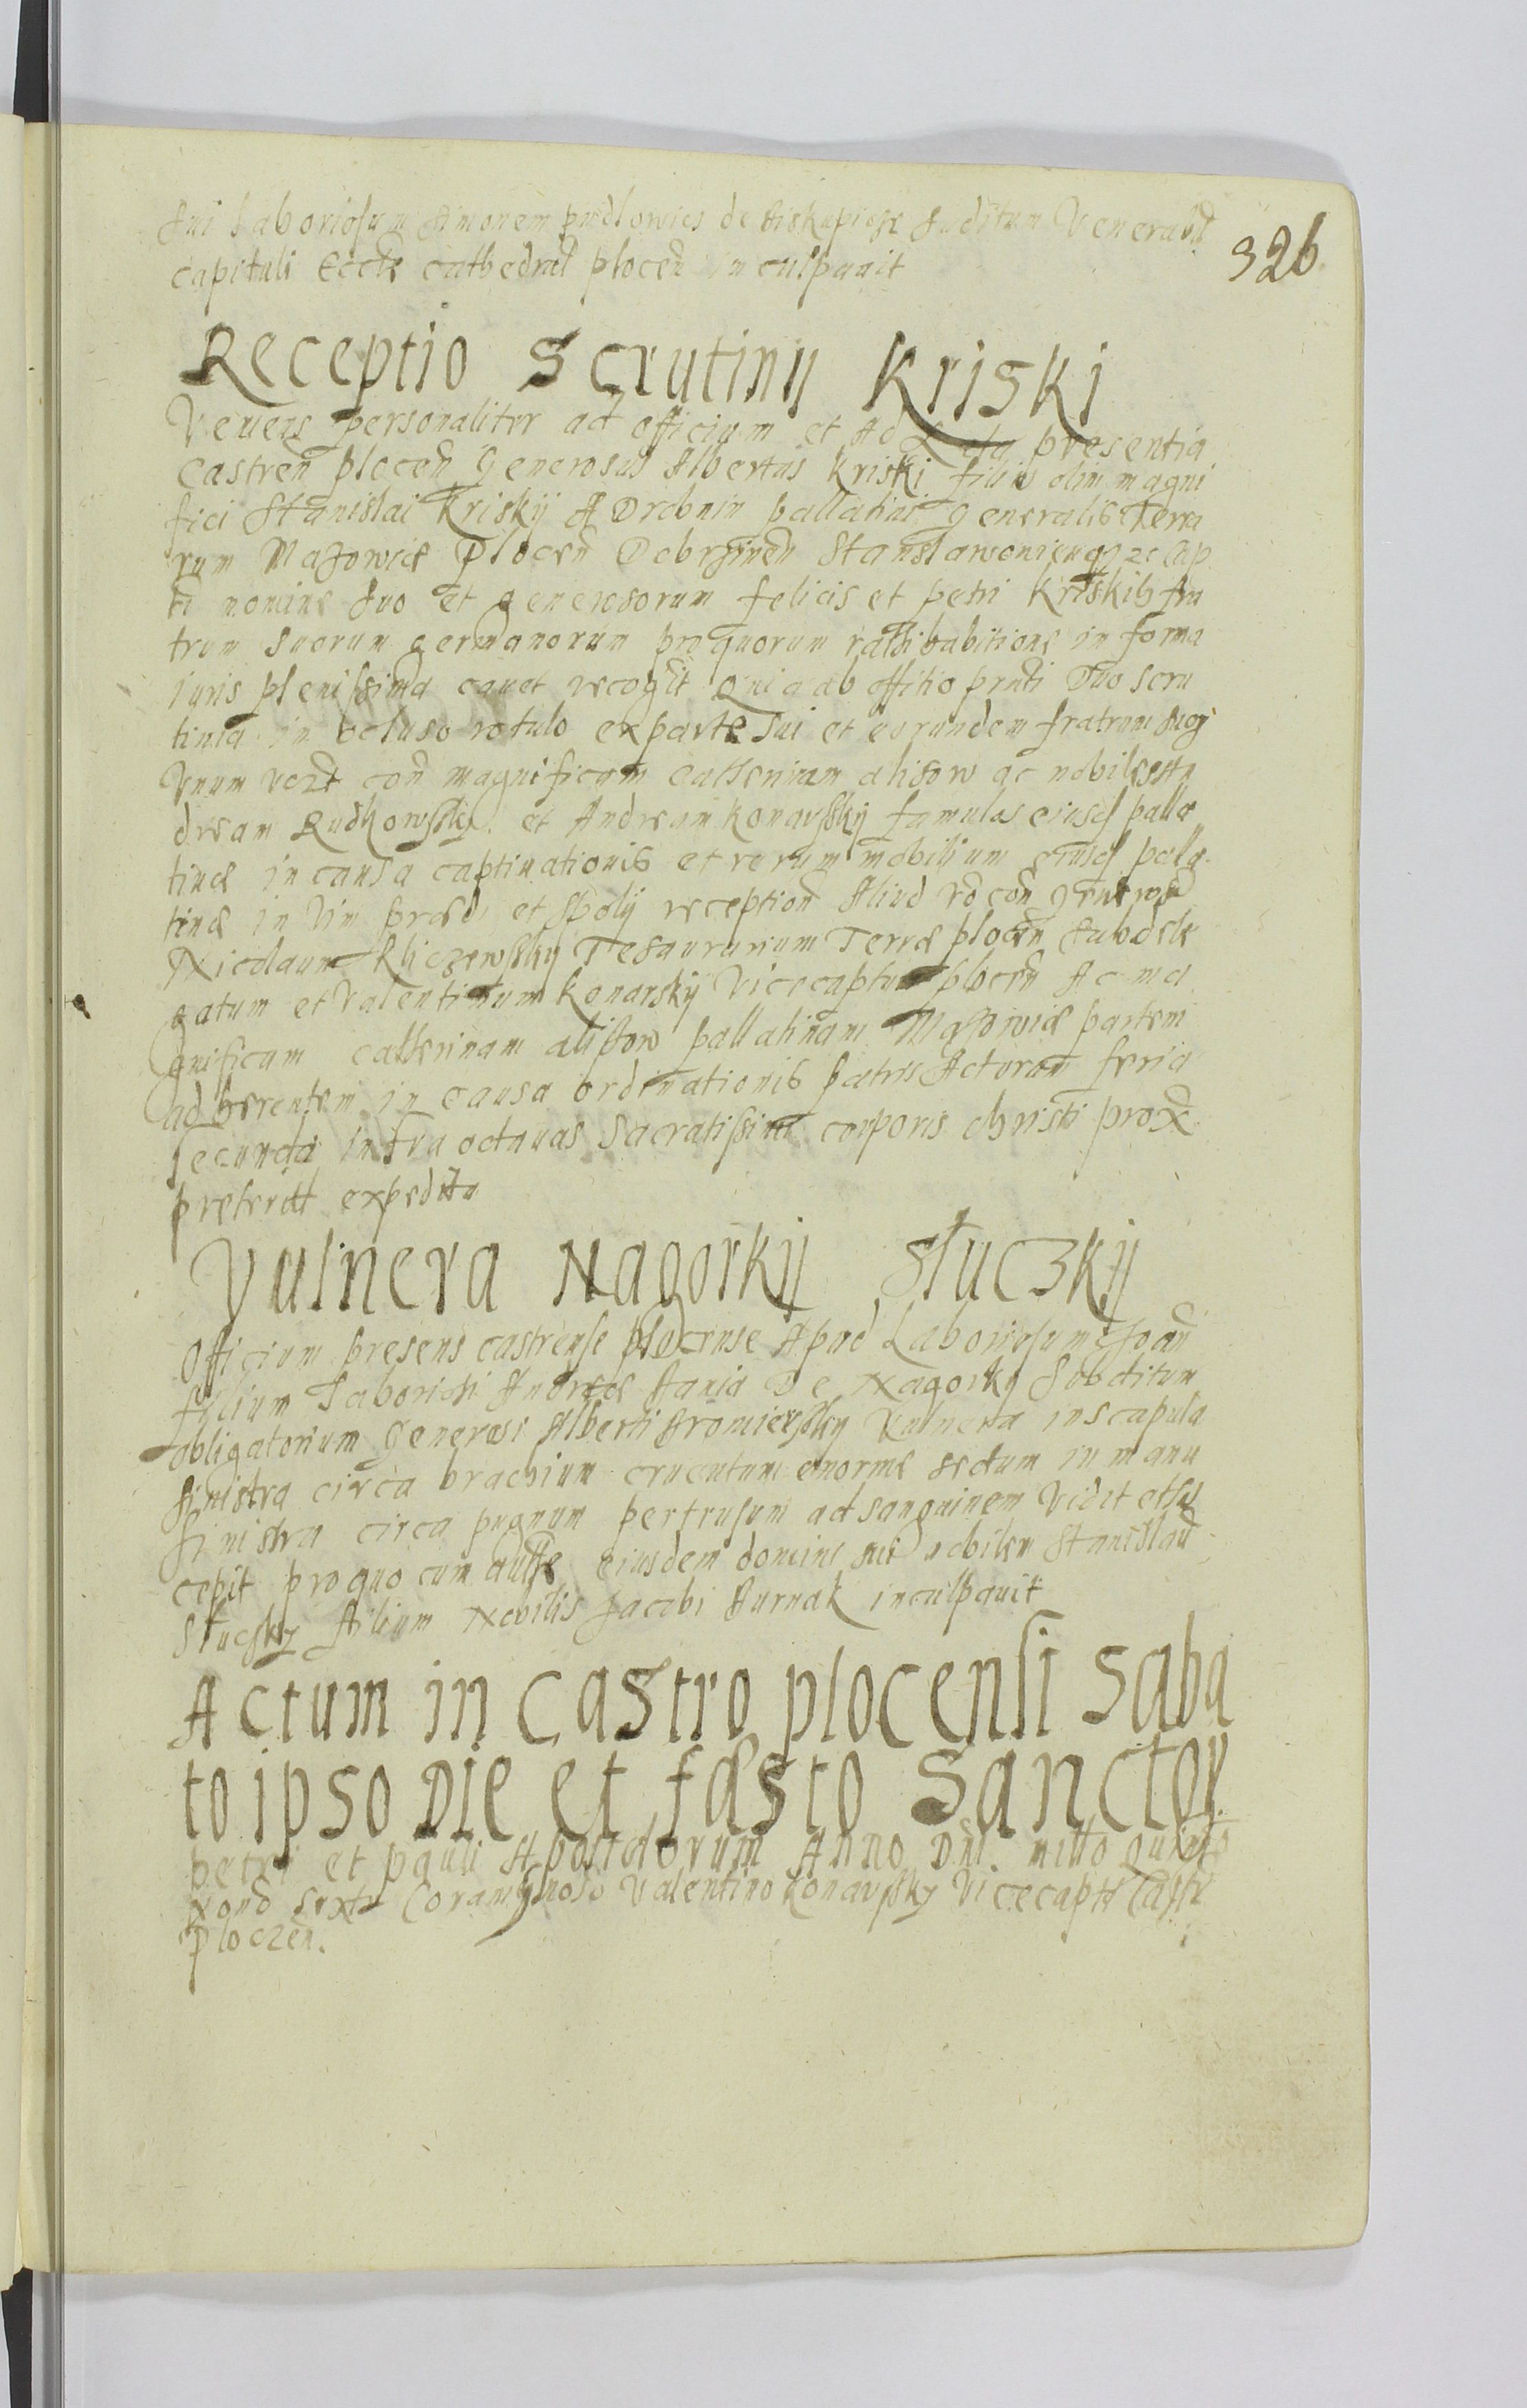 sui Laboriosum Simonem pudlowics de Biskupicze Suditum Venerabil
capituli Eccle cathedral plocen inculpauit
326
Receptio Scrutiny Kriski
Veniens personaliter ad officium et Acta presentia
castren plocen Generosus Albertus Kriski filius olim magni
fici Stanislai Kriskij A Drobnin pallatini generalis Terra
rum Mazowiæ Plocen Dobrzinen Stanslawowien qz zc Cap
ti nomine suo et generosorum felicis et petri Kriskih fra
trum suorum germanorum pro quorum rathihabitione in forma
iuris plenissima cauet recognit Quia ab offitio prnti Duo scru
tinia in ocluso rotulo ex parte sui et eorundem fratrum suorum
Vnum con magnificam Catherinam alisow ac nobiles An
dream Rudkowsky et Andream Konarskij famulos eiusd palla
tinæ in causa captiuationis et rerum mobilium eiusd palla
tinæ in Vim præd et Spolij reception Aliud con generosu
Nicolaum Kliczewsky Tesaurarium Terræ plocen Subdele
gatum et Valentinum Konarskij Vicecaptum plocen Ac ma
gnificam Catherinam alistow pallatinam Masowiæ partem
adherentem in causa ordinationis patris Actorum feria
secunda infra octauas Sacratissimi corporis christi prox
preterit expedita
Vulnera Nagorkij Sluczkij
Officium presens castrense plocense Apud Laboriosum Joan
fylium Laboriosi Andreæ Bania De Nagorky Sobditum
obligatorium Generosi Alberti Sromiersky Vulnera in scapula
sinistra circa brachium cruentum enorme sectum in manu
sinistra circa pugnum pertrusum ad sanguinem Vidit et sus
cepit pro quo cum autthe eiusdem domine sui nobilem Stanislau
Slucsky filium Nobilis Jacobi Burnak inculpauit
Actum in Castro plocensi Saba
to ipso Die et fæsto Sanctor
petri et pauli Apostolorum Anno Dni millo quingto
nono sexto Coram gnoso Valentino Konarsky Vicecapto Castr
ploczen.